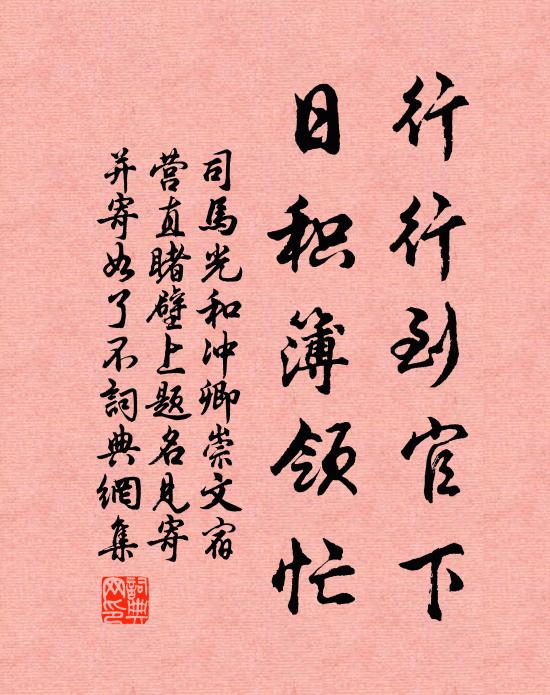 行行到官下
日积簿领忙
司馬光和冲卿崇文宿
营直睹壁上题名見寄
并寄如了不詞典網集
詞典网印